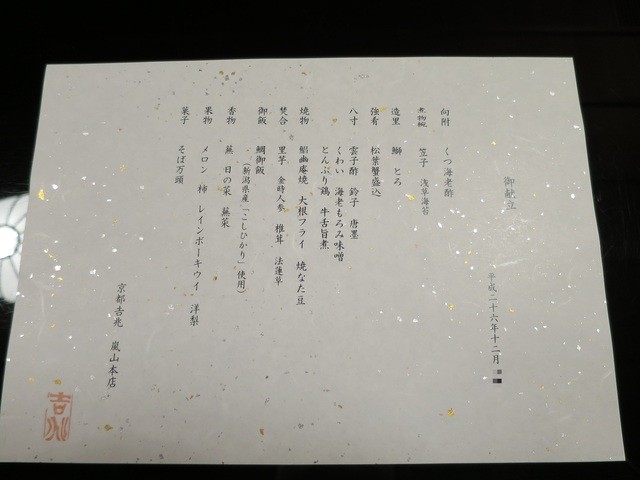 御献立
平成二十六年十二月
向附 くつ海老酢
煮物椀 笠子 浅草海苔
造里 鰤 とろ
強肴 松葉蟹盛込
八寸 雲子酢 鈴子 唐墨
くわい 海老もろみ味噌
とんぶり鶏 牛舌旨煮
焼物 鯧幽庵焼 大根フライ 焼なた豆
焚合 里芋 金時人参 椎茸 法蓮草
御飯 鯛御飯
(新潟県産「こしひかり」使用)
香物 蕪 日の菜 蕪菜
果物 メロン 柿 レインボーキウイ 洋梨
菓子 そば万頭
京都吉兆 嵐山本店
吉兆